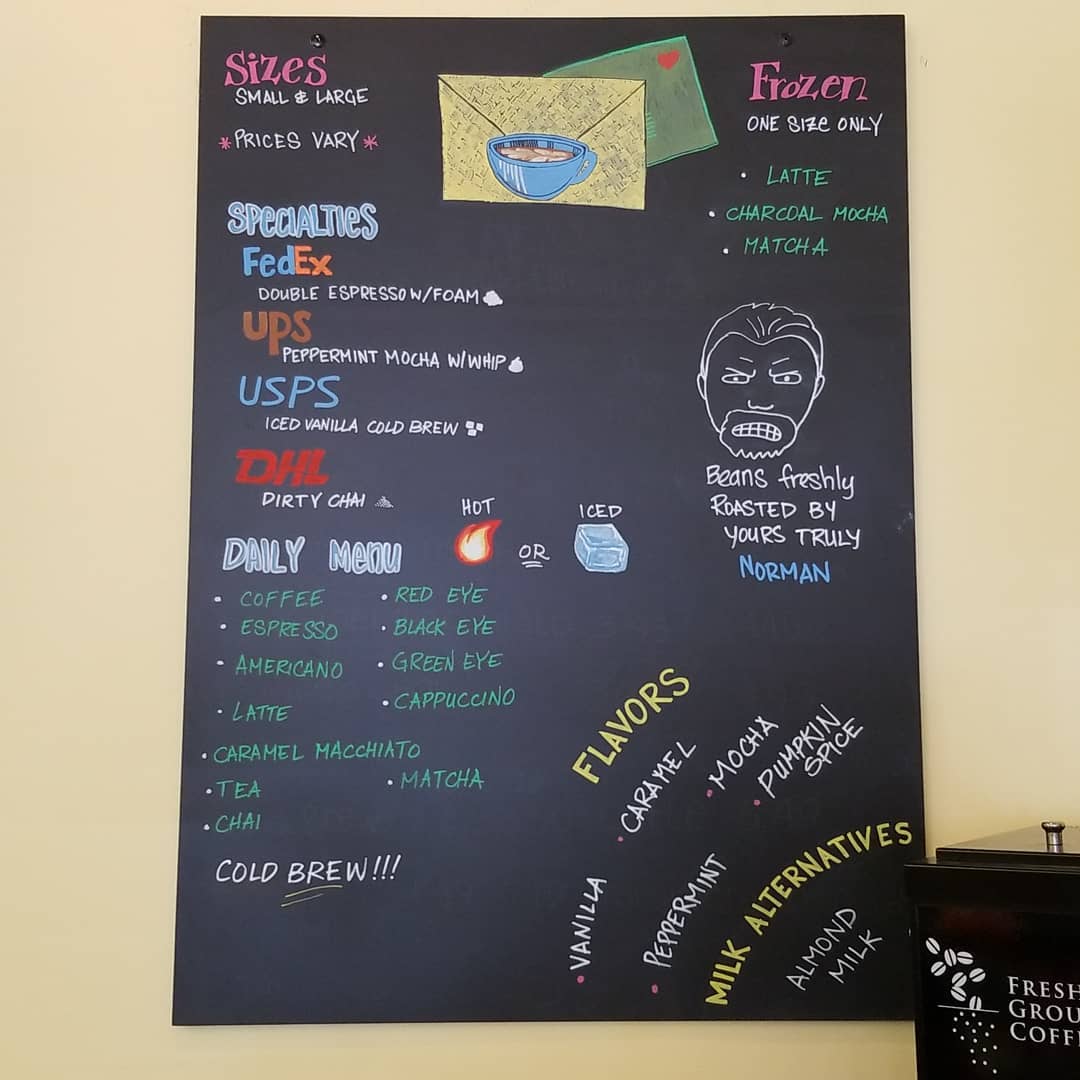 Sizes
SMALL & LARGE
*PRICES VARY*
SPECIALTIES
FedEx
DOUBLE ESPRESSO W/FOAM
UPS
PEPPERMINT MOCHA W/WHIP
USPS
ICED VANILLA COLD BREW
DHL
DIRTY CHAI
HOT
OR
ICED
DAILY MENU
• COFFEE
• ESPRESSO
• AMERICANO
• LATTE
• CARAMEL MACCHIATO
• TEA
• CHAI
• RED EYE
• BLACK EYE
• GREEN EYE
• CAPPUCCINO
• MATCHA
COLD BREW!!!
Frozen
ONE SIZE ONLY
• LATTE
• CHARCOAL MOCHA
• MATCHA
Beans freshly
ROASTED BY
YOURS TRULY
NORMAN
FLAVORS
• CARAMEL
• MOCHA
• PUMPKIN
SPICE
• VANILLA
• PEPPERMINT
MILK ALTERNATIVES
ALMOND
MILK
FRESH
GROU
COFF